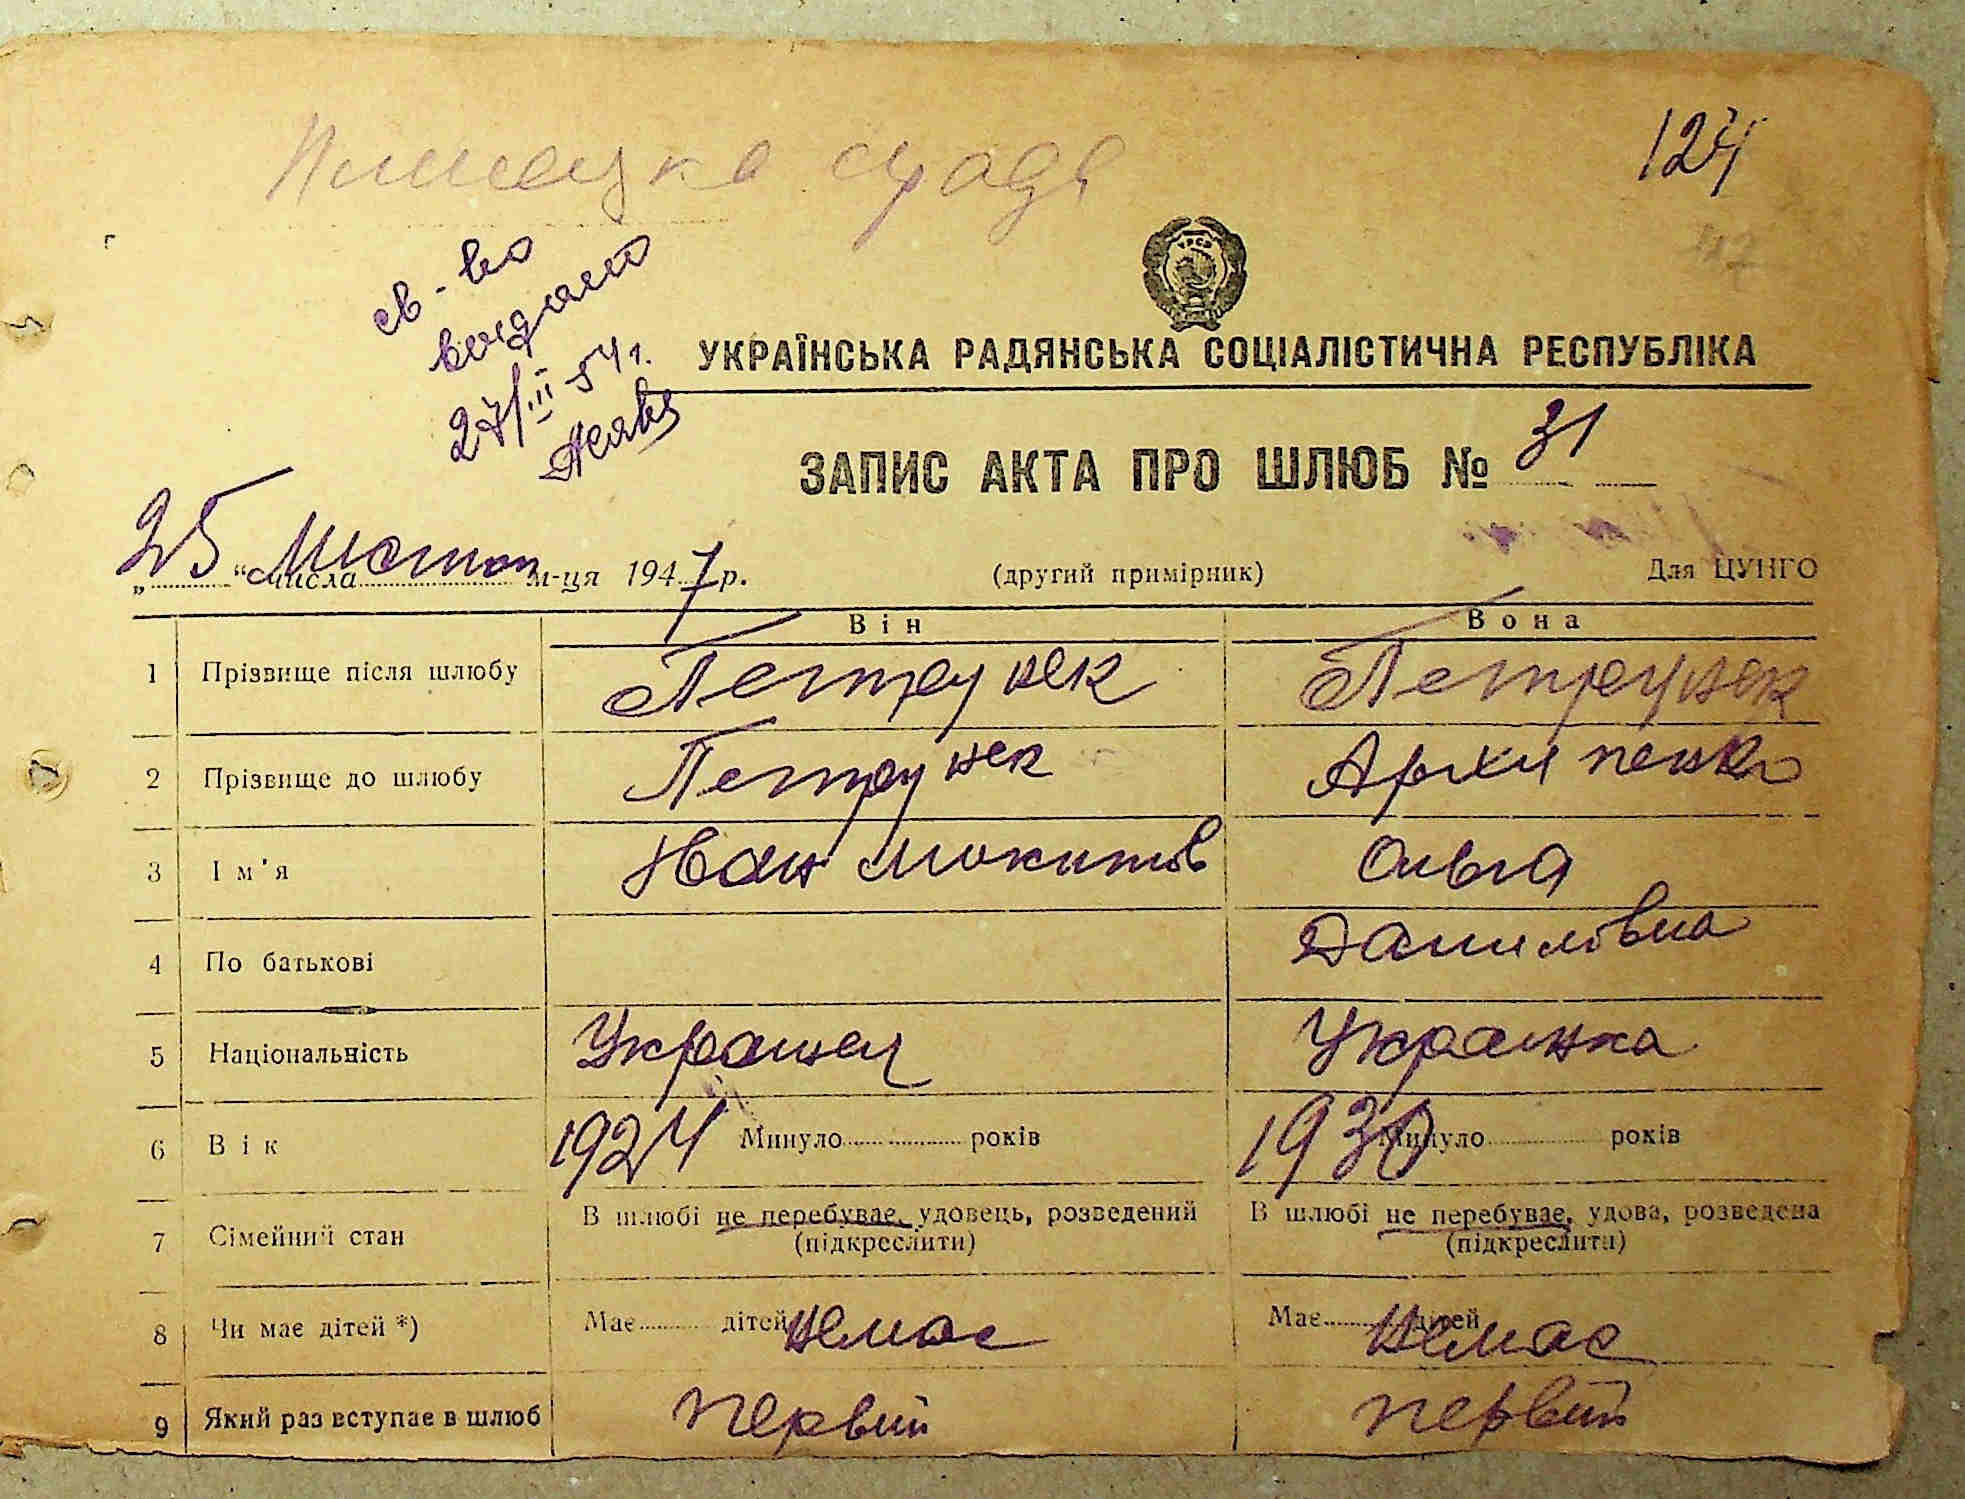 124
УРСР
св-во
выдано
27/III-54 г.
УКРАЇНСЬКА РАДЯНСЬКА СОЦІАЛІСТИЧНА РЕСПУБЛІКА
ЗАПИС АКТА ПРО ШЛЮБ № 31
„25“ числа Листоп м-ця 1947 р.
(другий примірник)
Для ЦУНГО
Він Вона
1 Прізвище після шлюбу Петрунек Петрунек
2 Прізвище до шлюбу Петрунек Архипенко
3 Ім'я Іван Мокитов Ольга
4 По батькові Даниловна
5 Національність Украинец Украинка
6 Вік 1924 Минуло років 1930 Минуло років
7 Сімейний стан В шлюбі не перебуває, удовець, розведений В шлюбі не перебуває, удова, розведена
(підкреслити) (підкреслити)
8 Чи має дітей *) Має дітей немає Має дітей немає
9 Який раз вступає в шлюб первий первий